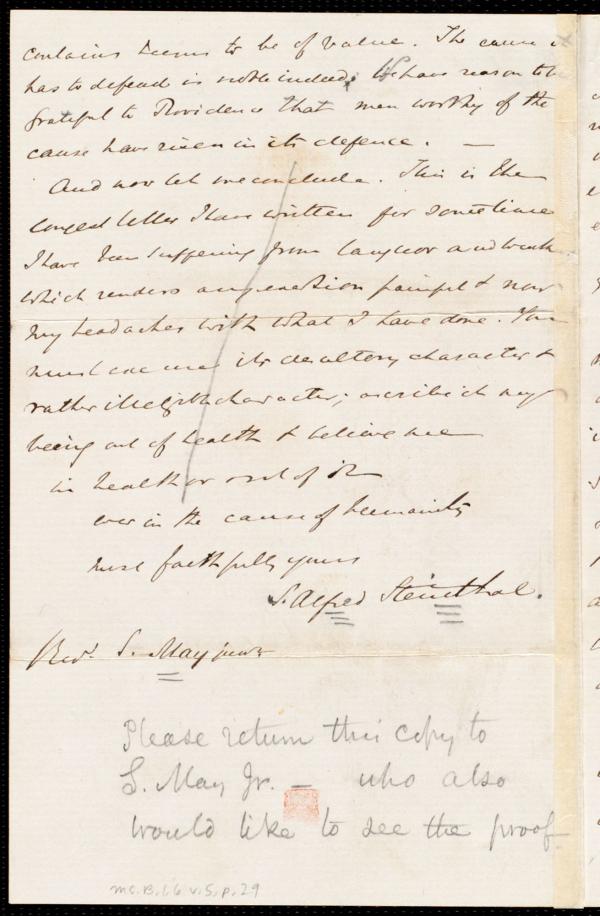 contains seems to be of value. The cause it
has to defend is noble indeed. We have reason to be
grateful to Providence that men worthy of the
cause have risen in its defence. —
And now let me conclude. This is the
longest letter I have written for some time
I have been suffering from languor and weak
which renders any exertion painful & now
my head aches with what I have done. You
must excuse its desultory character &
rather illegible character; ascribe it my
being out of health & believe me
in health or out of it
ever in the cause of humanity
most faithfully yours
S. Alfred Steinthal.
Revd. S. May junr
Please return this copy to
S. May Jr. — who also
would like to see the proof
Ms. B. 1.6 v. 5, p. 29